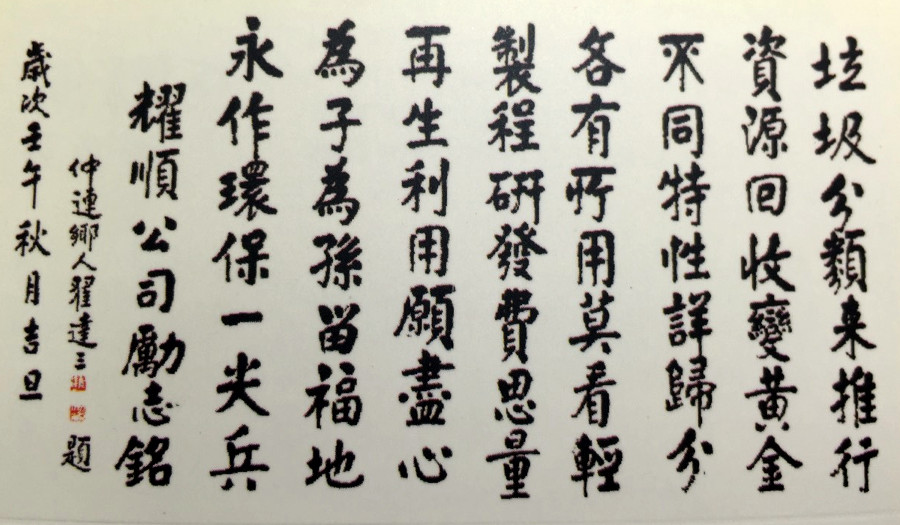 垃圾分類來推行
資源回收變黃金
不同特性詳歸分
各有所用莫看輕
製程研發費思量
再生利用願盡心
為子為孫留福地
永作環保一尖兵
耀順公司勵志銘
仲連鄉人翟達三 題
歲次壬午秋月吉旦